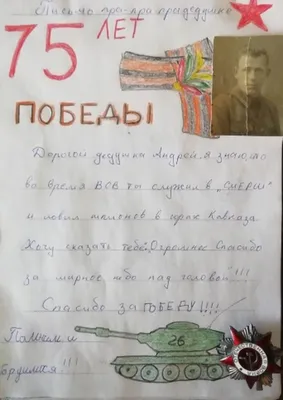 Письмо пра-пра прадедушке
75 ЛЕТ
ПОБЕДЫ
Дорогой дедушка Андрей, я знаю, что
во время ВОВ ты служил в "СМЕРШ"
и ловил шпионов в горах Кавказа.
Хочу сказать тебе, Огромное Спасибо
за мирное небо над головой!!!
Спасибо за ПОБЕДУ!!!!
Помним и
26
гордимся!!!